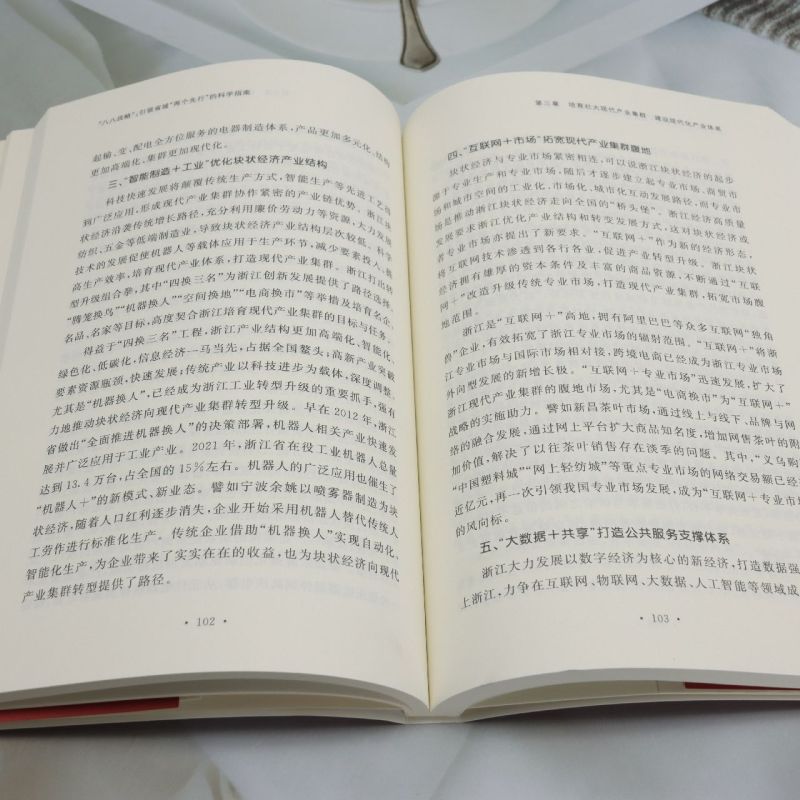 “八八战略”：引领省域“两个先行”的科学指南
起输、变、配电全方位服务的电器制造体系，产品更加多元化、结构
更加高端化、集群更加现代化。
三、“智能制造＋工业”优化块状经济产业结构
科技快速发展将颠覆传统生产方式，智能生产等先进工艺得
到广泛应用，形成现代产业集群协作紧密的产业链优势。浙江块
状经济沿袭传统增长路径，充分利用廉价劳动力等资源，大力发展
纺织、五金等低端制造业，导致块状经济产业结构层次较低。科学
技术的发展促使机器人等载体应用于生产环节，减少要素投入，提
高生产效率，培育现代产业体系，打造现代产业集群。浙江打出转
型升级组合拳，其中“四换三名”为浙江创新发展提供了路径选择。
“腾笼换鸟”“机器换人”“空间换地”“电商换市”等举措及培育名企、
名品、名家等目标，高度契合浙江培育现代产业集群的目标与任务。
得益于“四换三名”工程，浙江产业结构更加高端化、智能化、
绿色化、低碳化，信息经济一马当先，占据全国鳌头，高新产业突破
要素资源瓶颈，快速发展；传统产业以科技进步为载体，深度调整。
尤其是“机器换人”，已经成为浙江工业转型升级的重要抓手，强有
力地推动块状经济向现代产业集群转型升级。早在2012年，浙江
省做出“全面推进机器换人”的决策部署，机器人相关产业快速发
展并广泛应用于工业产业。2021年，浙江省在役工业机器人总量
达到13.4万台，占全国的15%左右。机器人的广泛应用也催生了
“机器人＋”的新模式、新业态。譬如宁波余姚以喷雾器制造为块
状经济，随着人口红利逐步消失，企业开始采用机器人替代传统人
工劳作进行标准化生产。传统企业借助“机器换人”实现自动化、
智能化生产，为企业带来了实实在在的收益，也为块状经济向现代
产业集群转型提供了路径。
• 102 •
第三章 培育壮大现代产业集群 建设现代化产业体系
四、“互联网＋市场”拓宽现代产业集群腹地
块状经济与专业市场紧密相连，可以说浙江块状经济的起步
源于专业生产和专业市场，随后才逐步建立起专业市场、商贸市
场和城市空间的工业化、市场化、城市化互动发展路径，而专业市
场是推动浙江块状经济走向全国的“桥头堡”。浙江经济高质量
发展要求浙江优化产业结构和转变发展方式，这对块状经济或
者专业市场亦提出了新要求。“互联网＋”作为新的经济形态，
将互联网技术渗透到各行各业，促进产业转型升级。浙江块状
经济拥有雄厚的资本条件及丰富的商品资源，不断通过“互联
网＋”改造升级传统专业市场，打造现代产业集群，拓宽市场腹
地范围。
浙江是“互联网＋”高地，拥有阿里巴巴等众多互联网“独角
兽”企业，有效拓宽了浙江专业市场的辐射范围。“互联网＋”将浙
江专业市场与国际市场相对接，跨境电商已经成为浙江专业市场
外向型发展的新增长极。“互联网＋专业市场”迅速发展，扩大了
浙江现代产业集群的腹地市场，尤其是“电商换市”为“互联网＋”
战略的实施助力。譬如新昌茶叶市场，通过线上与线下、品牌与网
络的融合发展，通过网上平台扩大商品知名度，增加网售茶叶的附
加价值，解决了以往茶叶销售存在淡季的问题。其中，“义乌购”
“中国塑料城”“网上轻纺城”等重点专业市场的网络交易额已经
近亿元，再一次引领我国专业市场发展，成为“互联网＋专业市场”
的风向标。
五、“大数据＋共享”打造公共服务支撑体系
浙江大力发展以数字经济为核心的新经济，打造数据强
上浙江，力争在互联网、物联网、大数据、人工智能等领域成
• 103 •